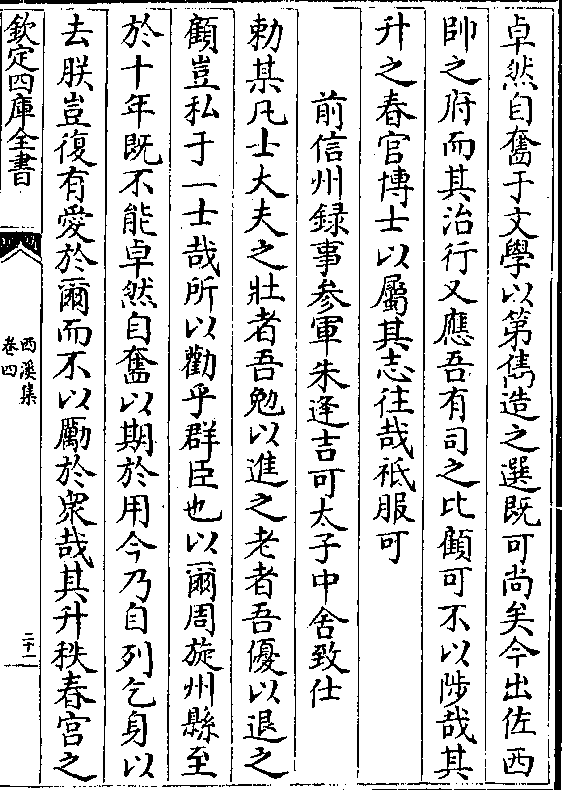 卓然自奮于文學以第雋造之選既可尚矣今出佐西
帥之府而其治行又應吾有司之比顧可不以陟哉其
升之春官博士以屬其志往哉祗服可
前信州録事参軍朱逢吉可太子中舍致仕
勅某凡士大夫之壯者吾勉以進之老者吾優以退之
顧豈私于一士哉所以勸乎群臣也以爾周旋州縣至
於十年既不能卓然自奮以期於用今乃自列乞身以
去朕豈復有愛於爾而不以勵於衆哉其升秩春宫之
欽定四庫全書
西溪集
卷四
二十二